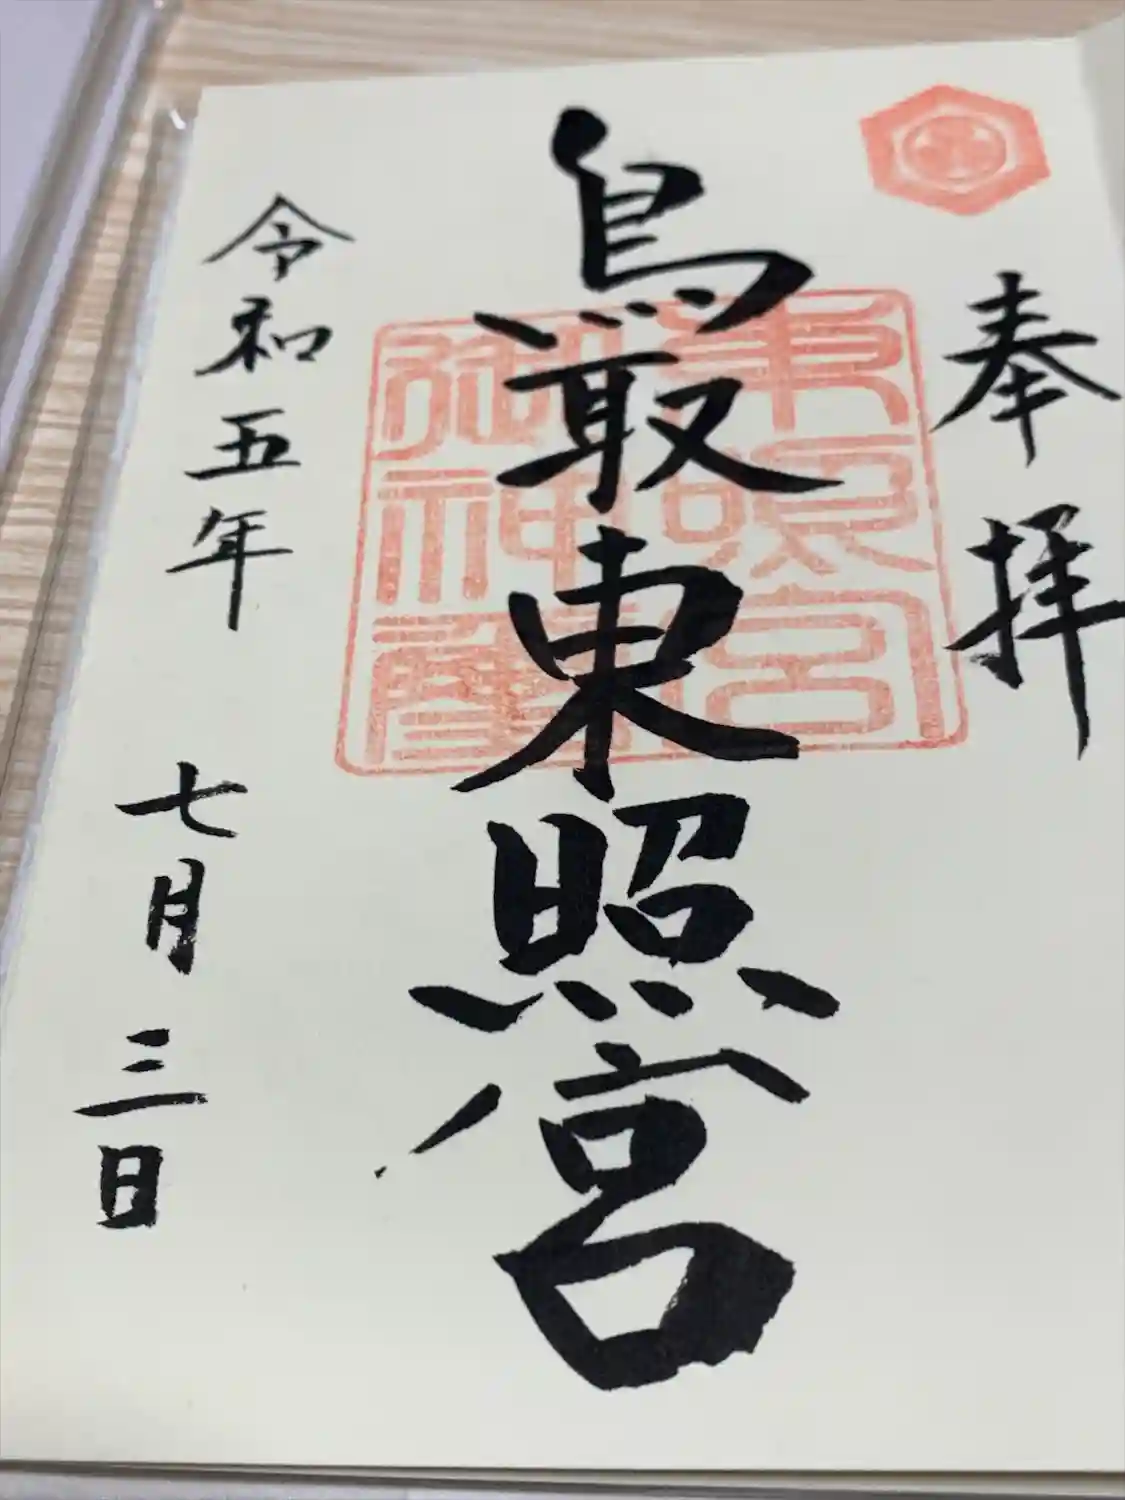 奉拝
鳥取東照宮
東照宮
御神璽
令和五年 七月三日